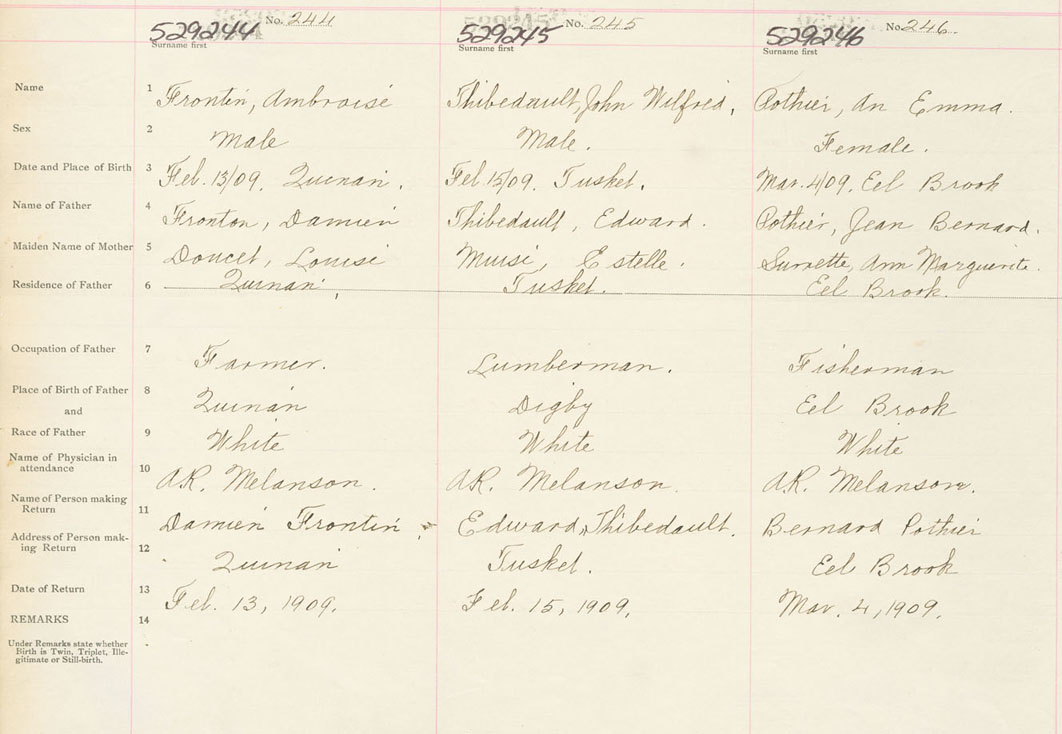 529244 No. 244 529245 No. 245 529246 No. 246
Surname first Surname first Surname first
Name 1 Frontin, Ambroise Thibedault, John Wilfred, Pothier, An Emma.
Sex 2 Male Male. Female.
Date and Place of Birth 3 Feb. 13/09, Quinan. Feb. 15/09, Tusket. Mar. 4/09, Eel Brook
Name of Father 4 Fronton, Damien Thibedault, Edward. Pothier, Jean Bernard.
Maiden Name of Mother 5 Doucet, Louise Muise, Estelle. Surrette, Ann Marguerite.
Residence of Father 6 Quinan, Tusket. Eel Brook.
Occupation of Father 7 Farmer. Lumberman. Fisherman
Place of Birth of Father 8 Quinan Digby Eel Brook
and
Race of Father 9 White White White
Name of Physician in
attendance 10 A.R. Melanson. A.R. Melanson. A.R. Melanson.
Name of Person making
Return 11 Damien Frontin, Edward, Thibedault. Bernard Pothier
Address of Person mak-
ing Return 12 Quinan Tusket. Eel Brook
Date of Return 13 Feb. 13, 1909. Feb. 15, 1909, Mar. 4, 1909.
REMARKS 14
Under Remarks state whether
Birth is Twin, Triplet, Ille-
gitimate or Still-birth.